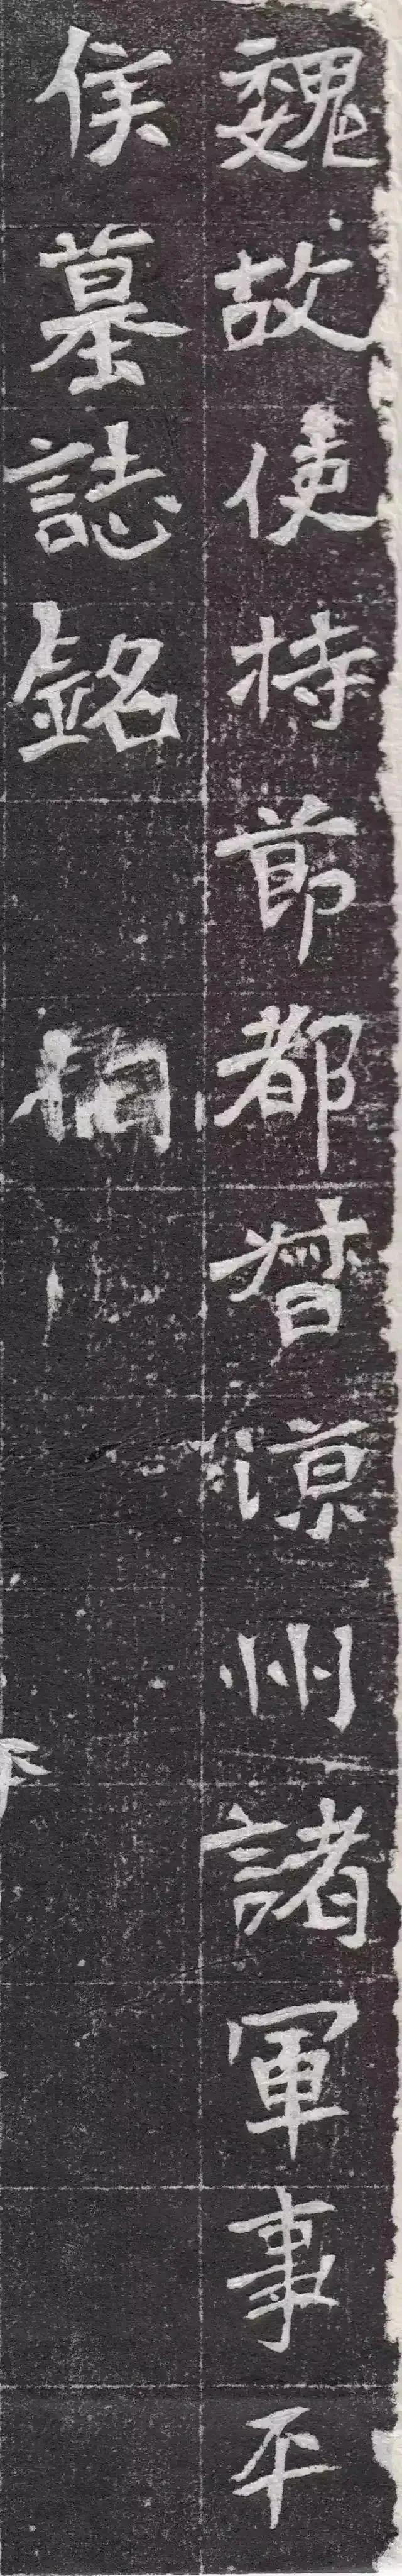 魏故使持節都督涼州諸軍事平
侯墓誌銘